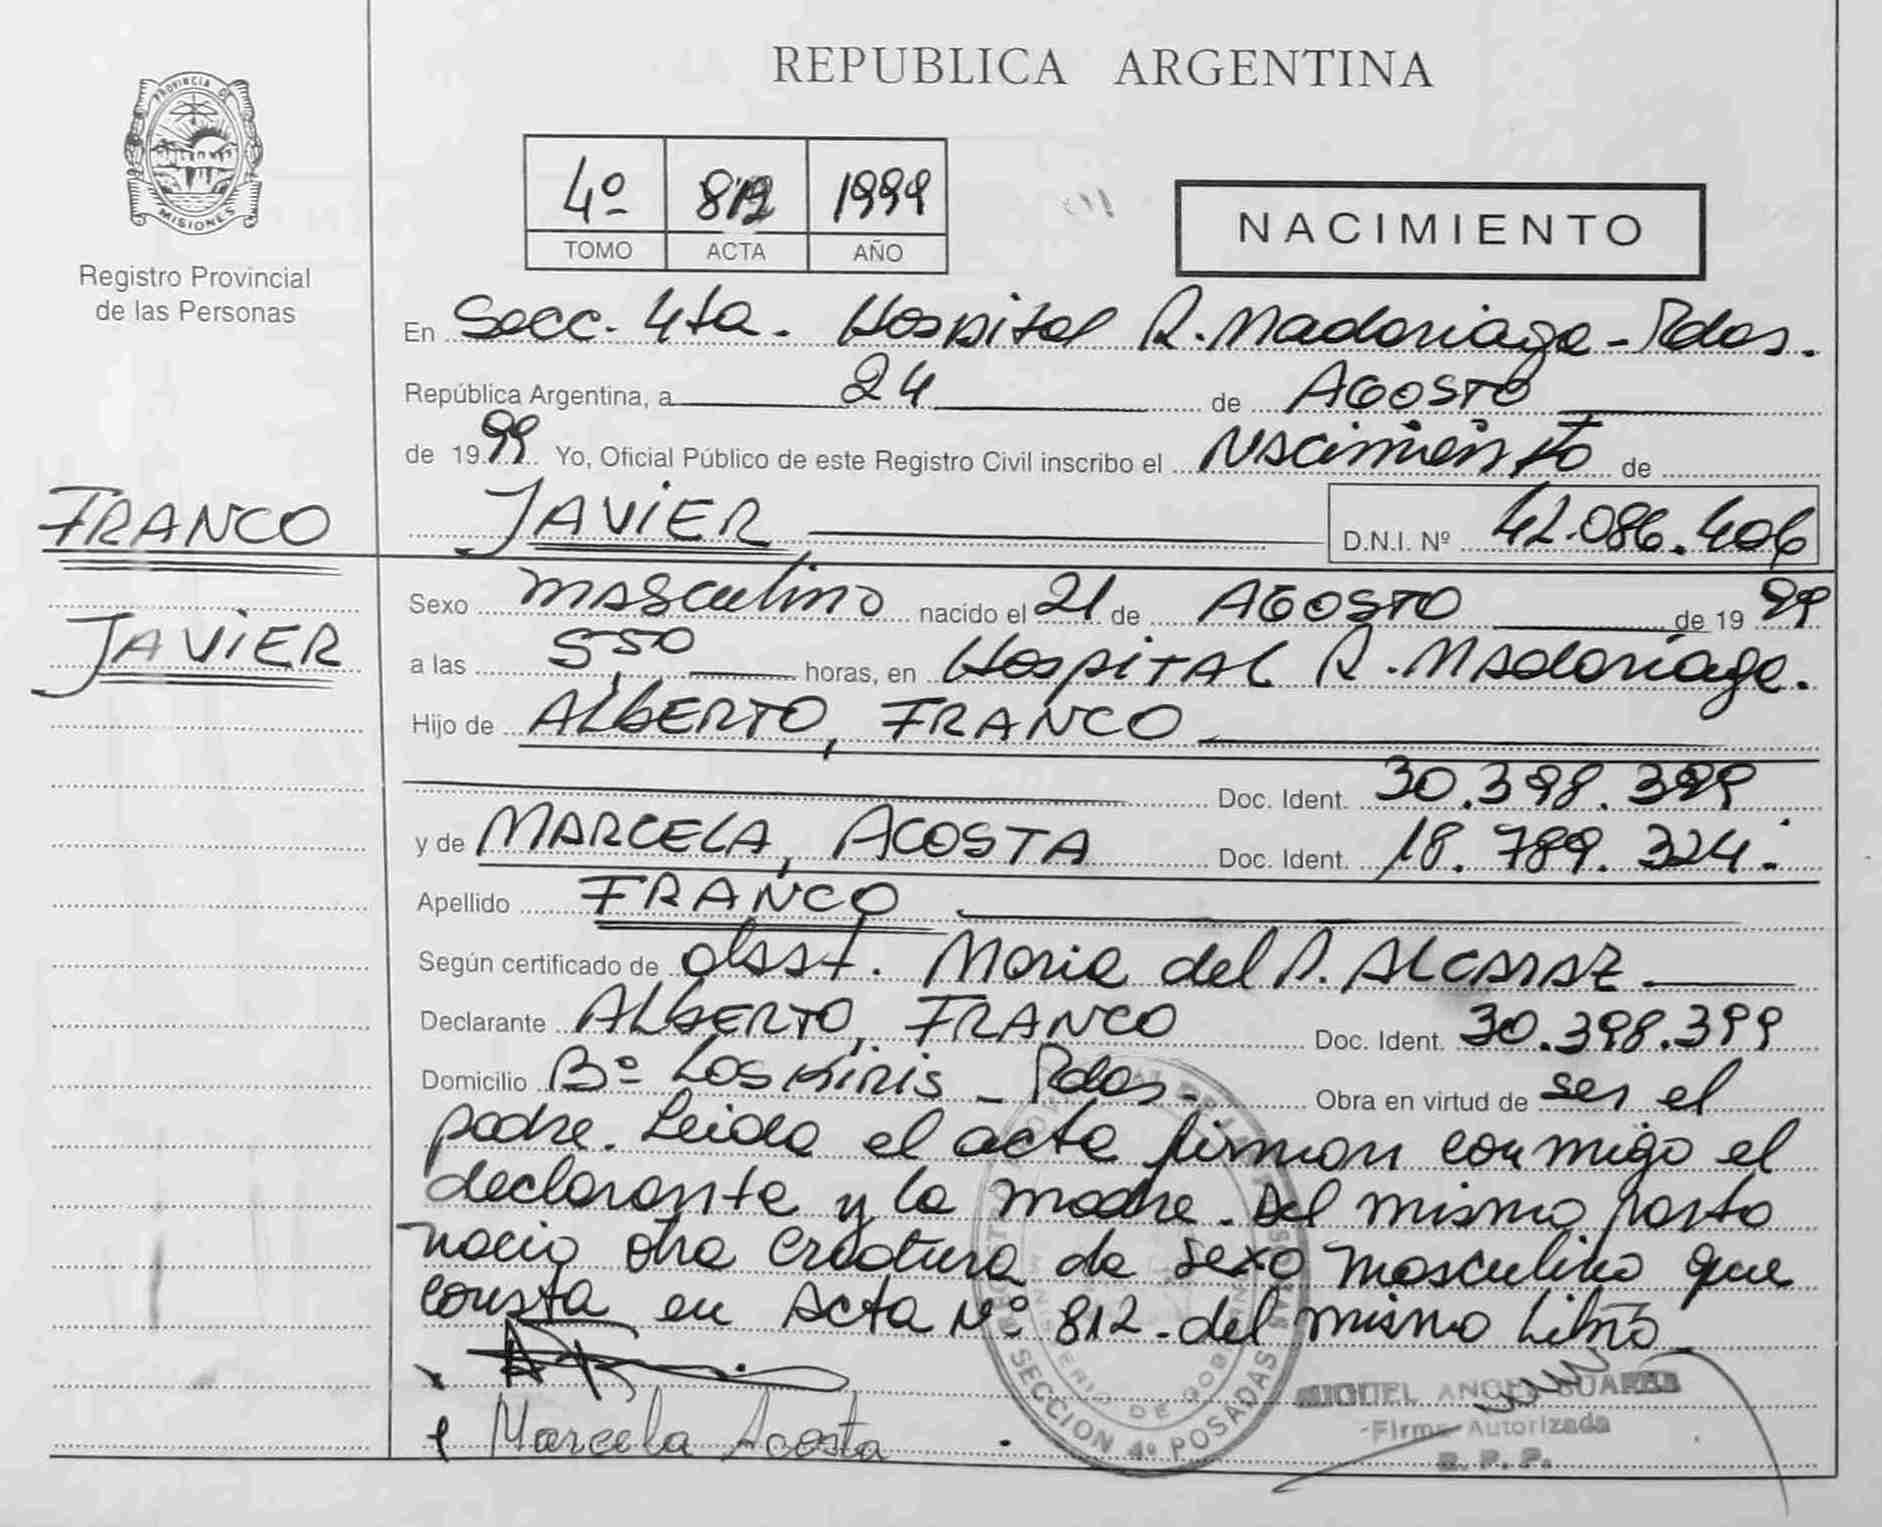 PROVINCIA DE
MISIONES
Registro Provincial
de las Personas
REPUBLICA ARGENTINA
4º 1999
TOMO ACTA AÑO
NACIMIENTO
En Secc. 4ta. Hospital R. Madariaga - Pdas.
República Argentina, a 24 de AGOSTO
de 1999 Yo, Oficial Público de este Registro Civil inscribo el Nacimiento de
FRANCO
JAVIER
JAVIER D.N.I. Nº 42.086.406
Sexo masculino nacido el 21 de AGOSTO de 1999
a las 5,50 horas, en Hospital R. Madariaga.
Hijo de ALBERTO, FRANCO
Doc. Ident. 30.398.399
y de MARCELA, ACOSTA Doc. Ident. 18.789.324.
Apellido FRANCO
Según certificado de obst. Maria del R. ALCARAZ
Declarante ALBERTO, FRANCO Doc. Ident. 30.398.399
Domicilio Bº Los Kiris - Pdas. Obra en virtud de ser el
padre. Leida el acta firman conmigo el
declarante y la madre. Del mismo parto
nacio otra criatura de sexo masculino que
consta en Acta Nº 812 - del mismo Libro
Marcela Acosta
SECCION 4º POSADAS
MINISTERIO DE GOBIERNO
MIGUEL ANGEL SUAREZ
-Firma Autorizada
R. P. P.